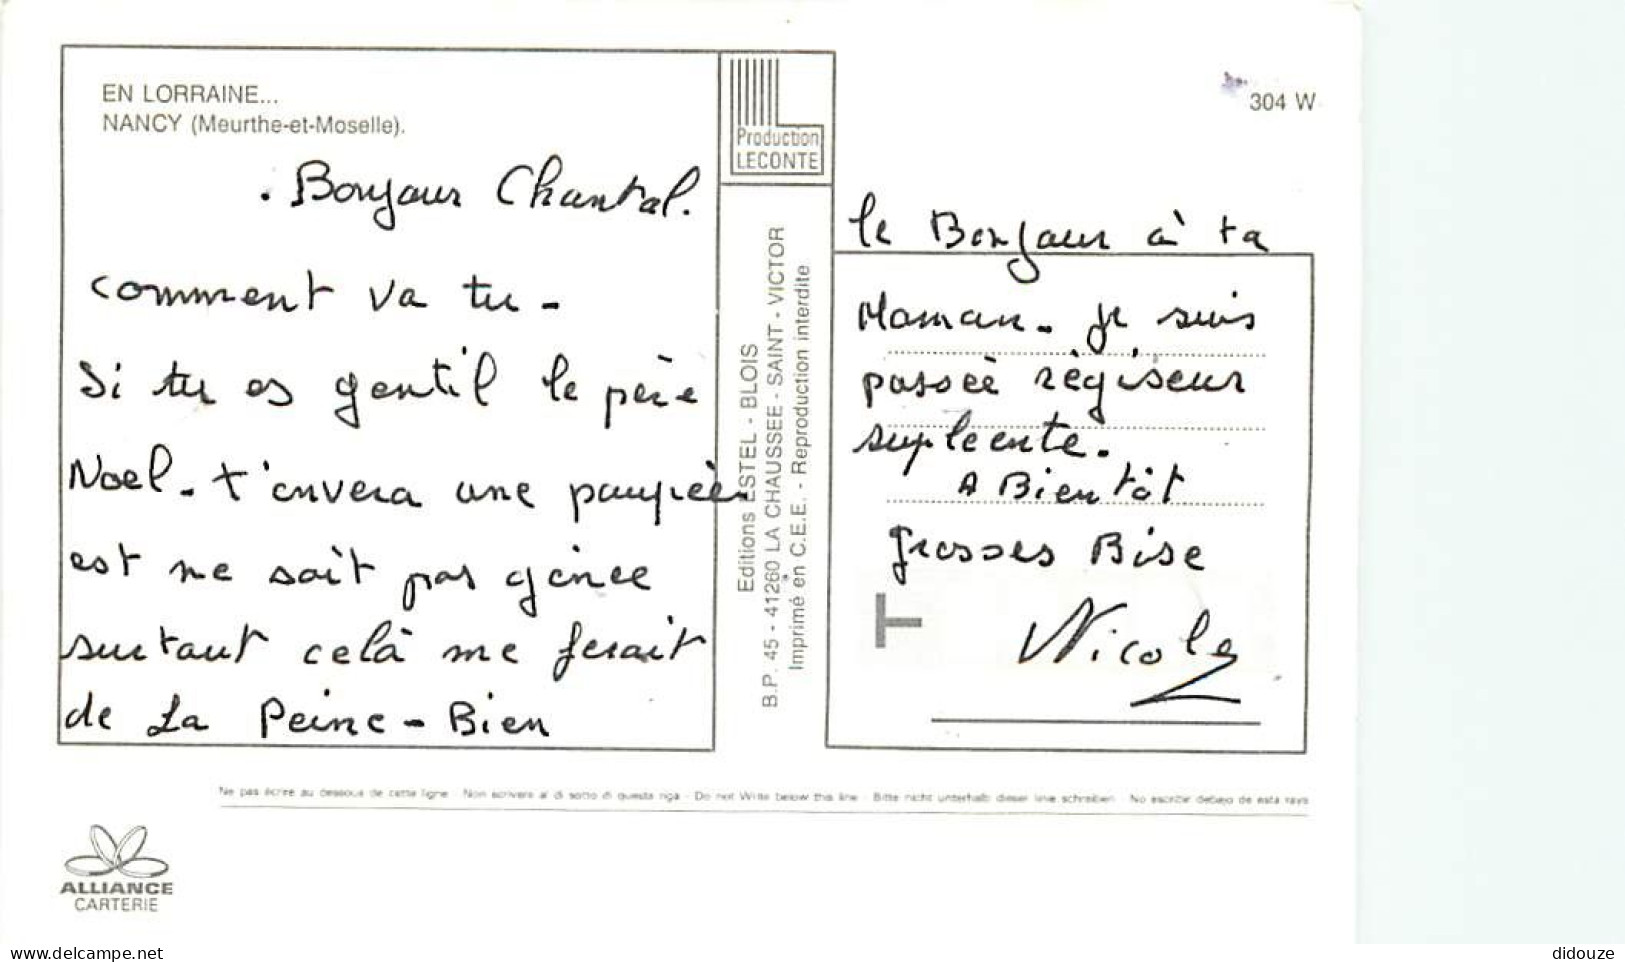 EN LORRAINE...
NANCY (Meurthe-et-Moselle).
. Bonjour Chantal.
comment va tu -
Si tu es gentil le père
Noel - t'envera une poupée
est ne soit pas génee
surtout celà me ferait
de La Peine - Bien
Production
LECONTE
Editions ESTEL - BLOIS
B.P. 45 - 41260 LA CHAUSSEE - SAINT - VICTOR
Imprimé en C.E.E. - Reproduction interdite
304 W
le Bonjour à ta
Maman - je suis
passée régiseur
supleente.
A Bientôt
grosses Bise
T
Nicole
Ne pas écrire au dessous de cette ligne - Non scrivere al di sotto di questa riga - Do not Write below this line - Bitte nicht unterhalb dieser linie schreiben - No escribir debajo de esta raya
ALLIANCE
CARTERIE
www.delcampe.net
didouze